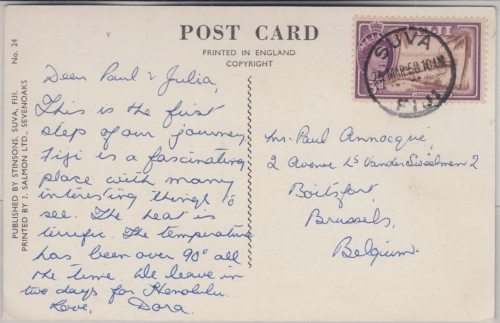 POST CARD
PRINTED IN ENGLAND
COPYRIGHT
No. 24
PUBLISHED BY STINSONS, SUVA, FIJI.
PRINTED BY J. SALMON LTD., SEVENOAKS
Dear Paul & Julia,
This is the first
step of our journey
Fiji is a fascinating
place with many
interesting things to
see. The heat is
terrific. The temperature
has been over 90° all
the time. We leave in
two days for Honolulu.
Love, Dora.
SUVA
MAR 58 10AM
FIJI
Mr. Paul
2 Avenue
Boitsfort,
Brussels,
Belgium.